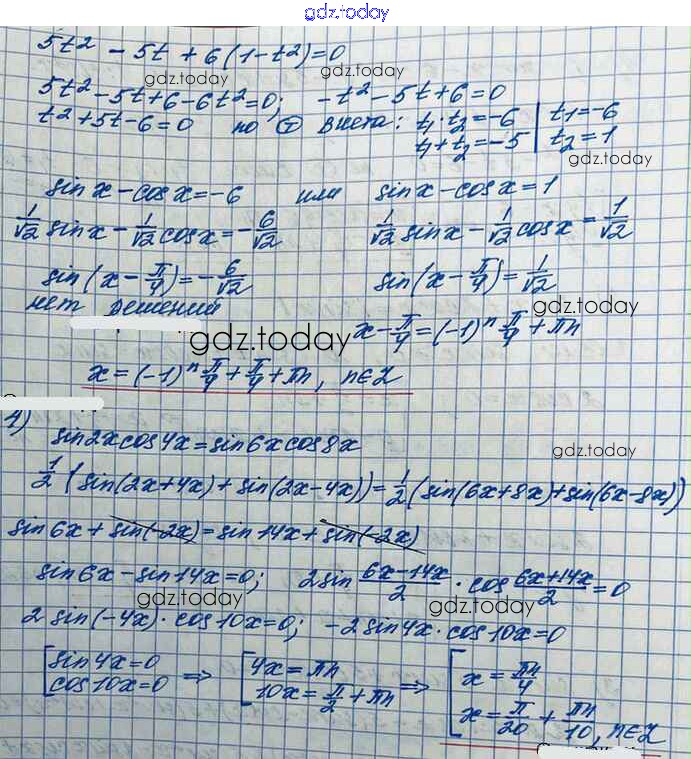 gdz.today
5t² - 5t + 6(1-t²)=0
gdz.today
gdz.today
5t²-5t+6-6t²=0; -t²-5t+6=0
t²+5t-6=0 по Ⓣ Виета: t₁·t₂=-6 | t₁=-6
t₁+t₂=-5 | t₂=1
gdz.today
sinx-cosx=-6 или sinx-cosx=1
1/√2 sinx - 1/√2 cosx = -6/√2 1/√2 sinx - 1/√2 cosx = 1/√2
sin(x-π/4)=-6/√2 sin(x-π/4)=1/√2
нет решений
gdz.today
gdz.today
x-π/4=(-1)ⁿ π/4 + πn
x=(-1)ⁿ π/4 + π/4 + πn, n∈Z
4)
sin2xcos4x=sin6xcos8x
gdz.today
1/2 (sin(2x+4x)+sin(2x-4x))=1/2(sin(6x+8x)+sin(6x-8x))
sin6x+sin(-2x)=sin14x+sin(-2x)
sin6x-sin14x=0; 2sin (6x-14x)/2 · cos (6x+14x)/2 = 0
gdz.today
gdz.today
2sin(-4x)·cos10x=0; -2sin4x·cos10x=0
[sin4x=0 ⇒ [4x=πn ⇒ [x=πn/4
cos10x=0 10x=π/2+πn x=π/20+πn/10, n∈Z